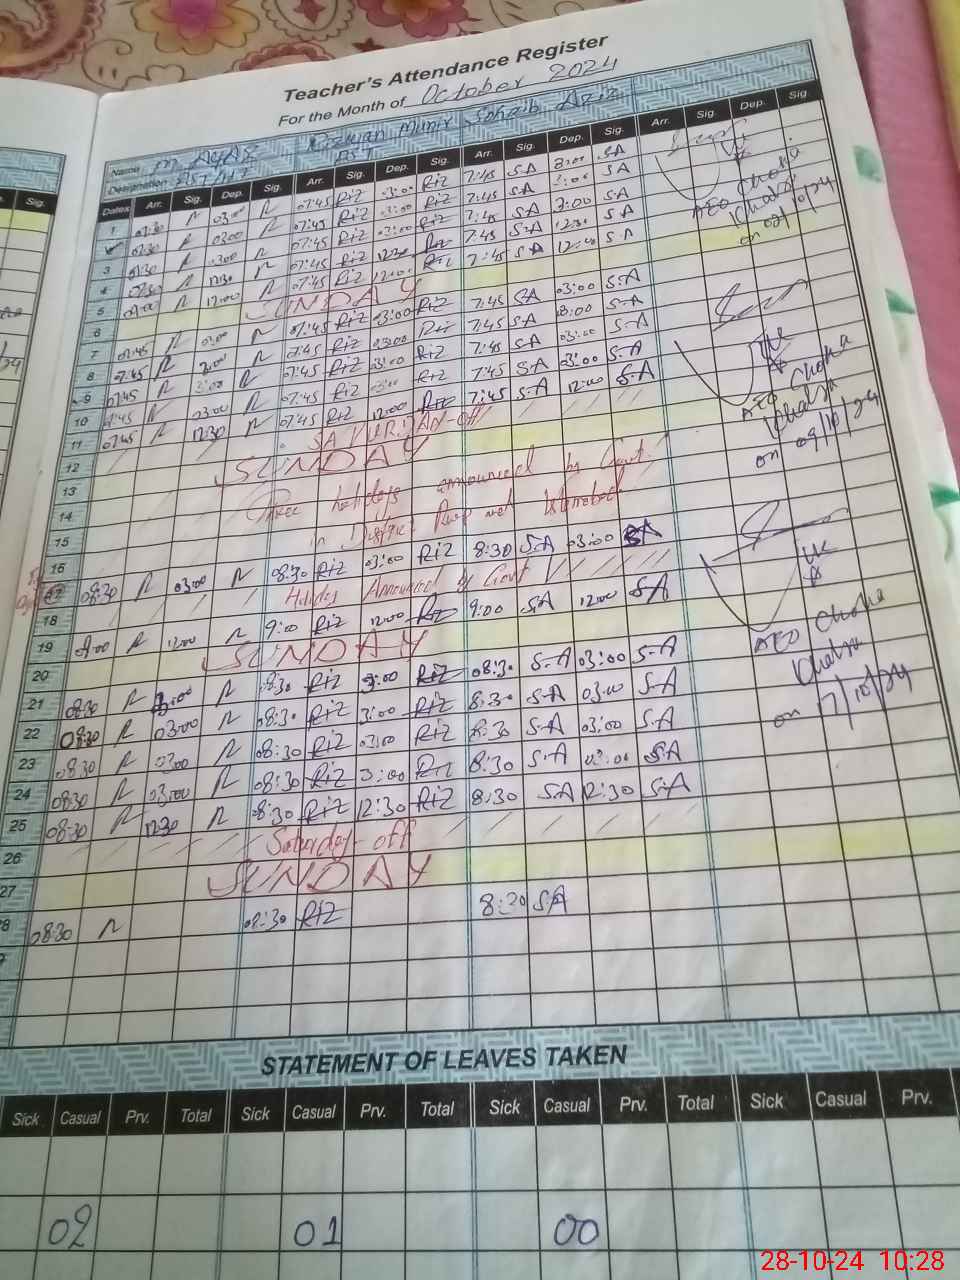 Teacher's Attendance Register
For the Month of October 2024
Name M. AyAZ Rizwan Munir Sohaib Aziz
Designation PST
Dates Arr. Sig. Dep. Sig. Arr. Sig. Dep. Sig. Arr. Sig. Dep. Sig. Arr. Sig. Dep. Sig.
1 07:30 03:00 07:45 Riz 03:00 Riz 7:45 S.A 3:00 S.A
07:30 03:00 07:45 Riz 03:00 Riz 7:45 S.A 3:00 S.A
3 07:30 03:00 07:45 Riz 03:00 Riz 7:45 S.A 3:00 S.A
4 07:30 12:30 07:45 Riz 12:30 Riz 7:45 S.A 12:30 S.A
5 12:00 07:45 Riz 12:00 Riz 7:45 S.A 12:00 S.A
6 SUNDAY
7 07:45 03:00 07:45 Riz 03:00 Riz 7:45 S.A 03:00 S.A
8 07:45 3:00 07:45 Riz 03:00 Riz 7:45 S.A 3:00 S.A
9 07:45 3:00 07:45 Riz 03:00 Riz 7:45 S.A 03:00 S.A
10 07:45 03:00 07:45 Riz 03:00 Riz 7:45 S.A 03:00 S.A
11 07:45 12:30 07:45 Riz 12:00 Riz 7:45 S.A 12:00 S.A
12 SATURDAY-off
13 SUNDAY
14 Three holidays announced by Govt.
15 in District and
16
17 08:30 03:00 08:30 Riz 03:00 Riz 8:30 S.A 03:00 S.A
18 Holiday Announced by Govt
19 9:00 12:00 9:00 Riz 12:00 Riz 9:00 S.A 12:00 S.A
20 SUNDAY
21 08:30 3:00 08:30 Riz 3:00 Riz 08:30 S.A 03:00 S.A
22 08:30 03:00 08:30 Riz 3:00 Riz 8:30 S.A 03:00 S.A
23 08:30 03:00 08:30 Riz 03:00 Riz 8:30 S.A 03:00 S.A
24 08:30 03:00 08:30 Riz 3:00 Riz 8:30 S.A 03:00 S.A
25 08:30 12:30 08:30 Riz 12:30 Riz 8:30 S.A 12:30 S.A
26 Saturday-off
27 SUNDAY
28 08:30 08:30 Riz 8:30 S.A
AEO Choha
Khalsa
on 02/10/24
AEO Choha
Khalsa
on 09/10/24
AEO Choha
Khalsa
on 17/10/24
STATEMENT OF LEAVES TAKEN
Sick Casual Prv. Total Sick Casual Prv. Total Sick Casual Prv. Total Sick Casual Prv.
02 01 00
28-10-24 10:28